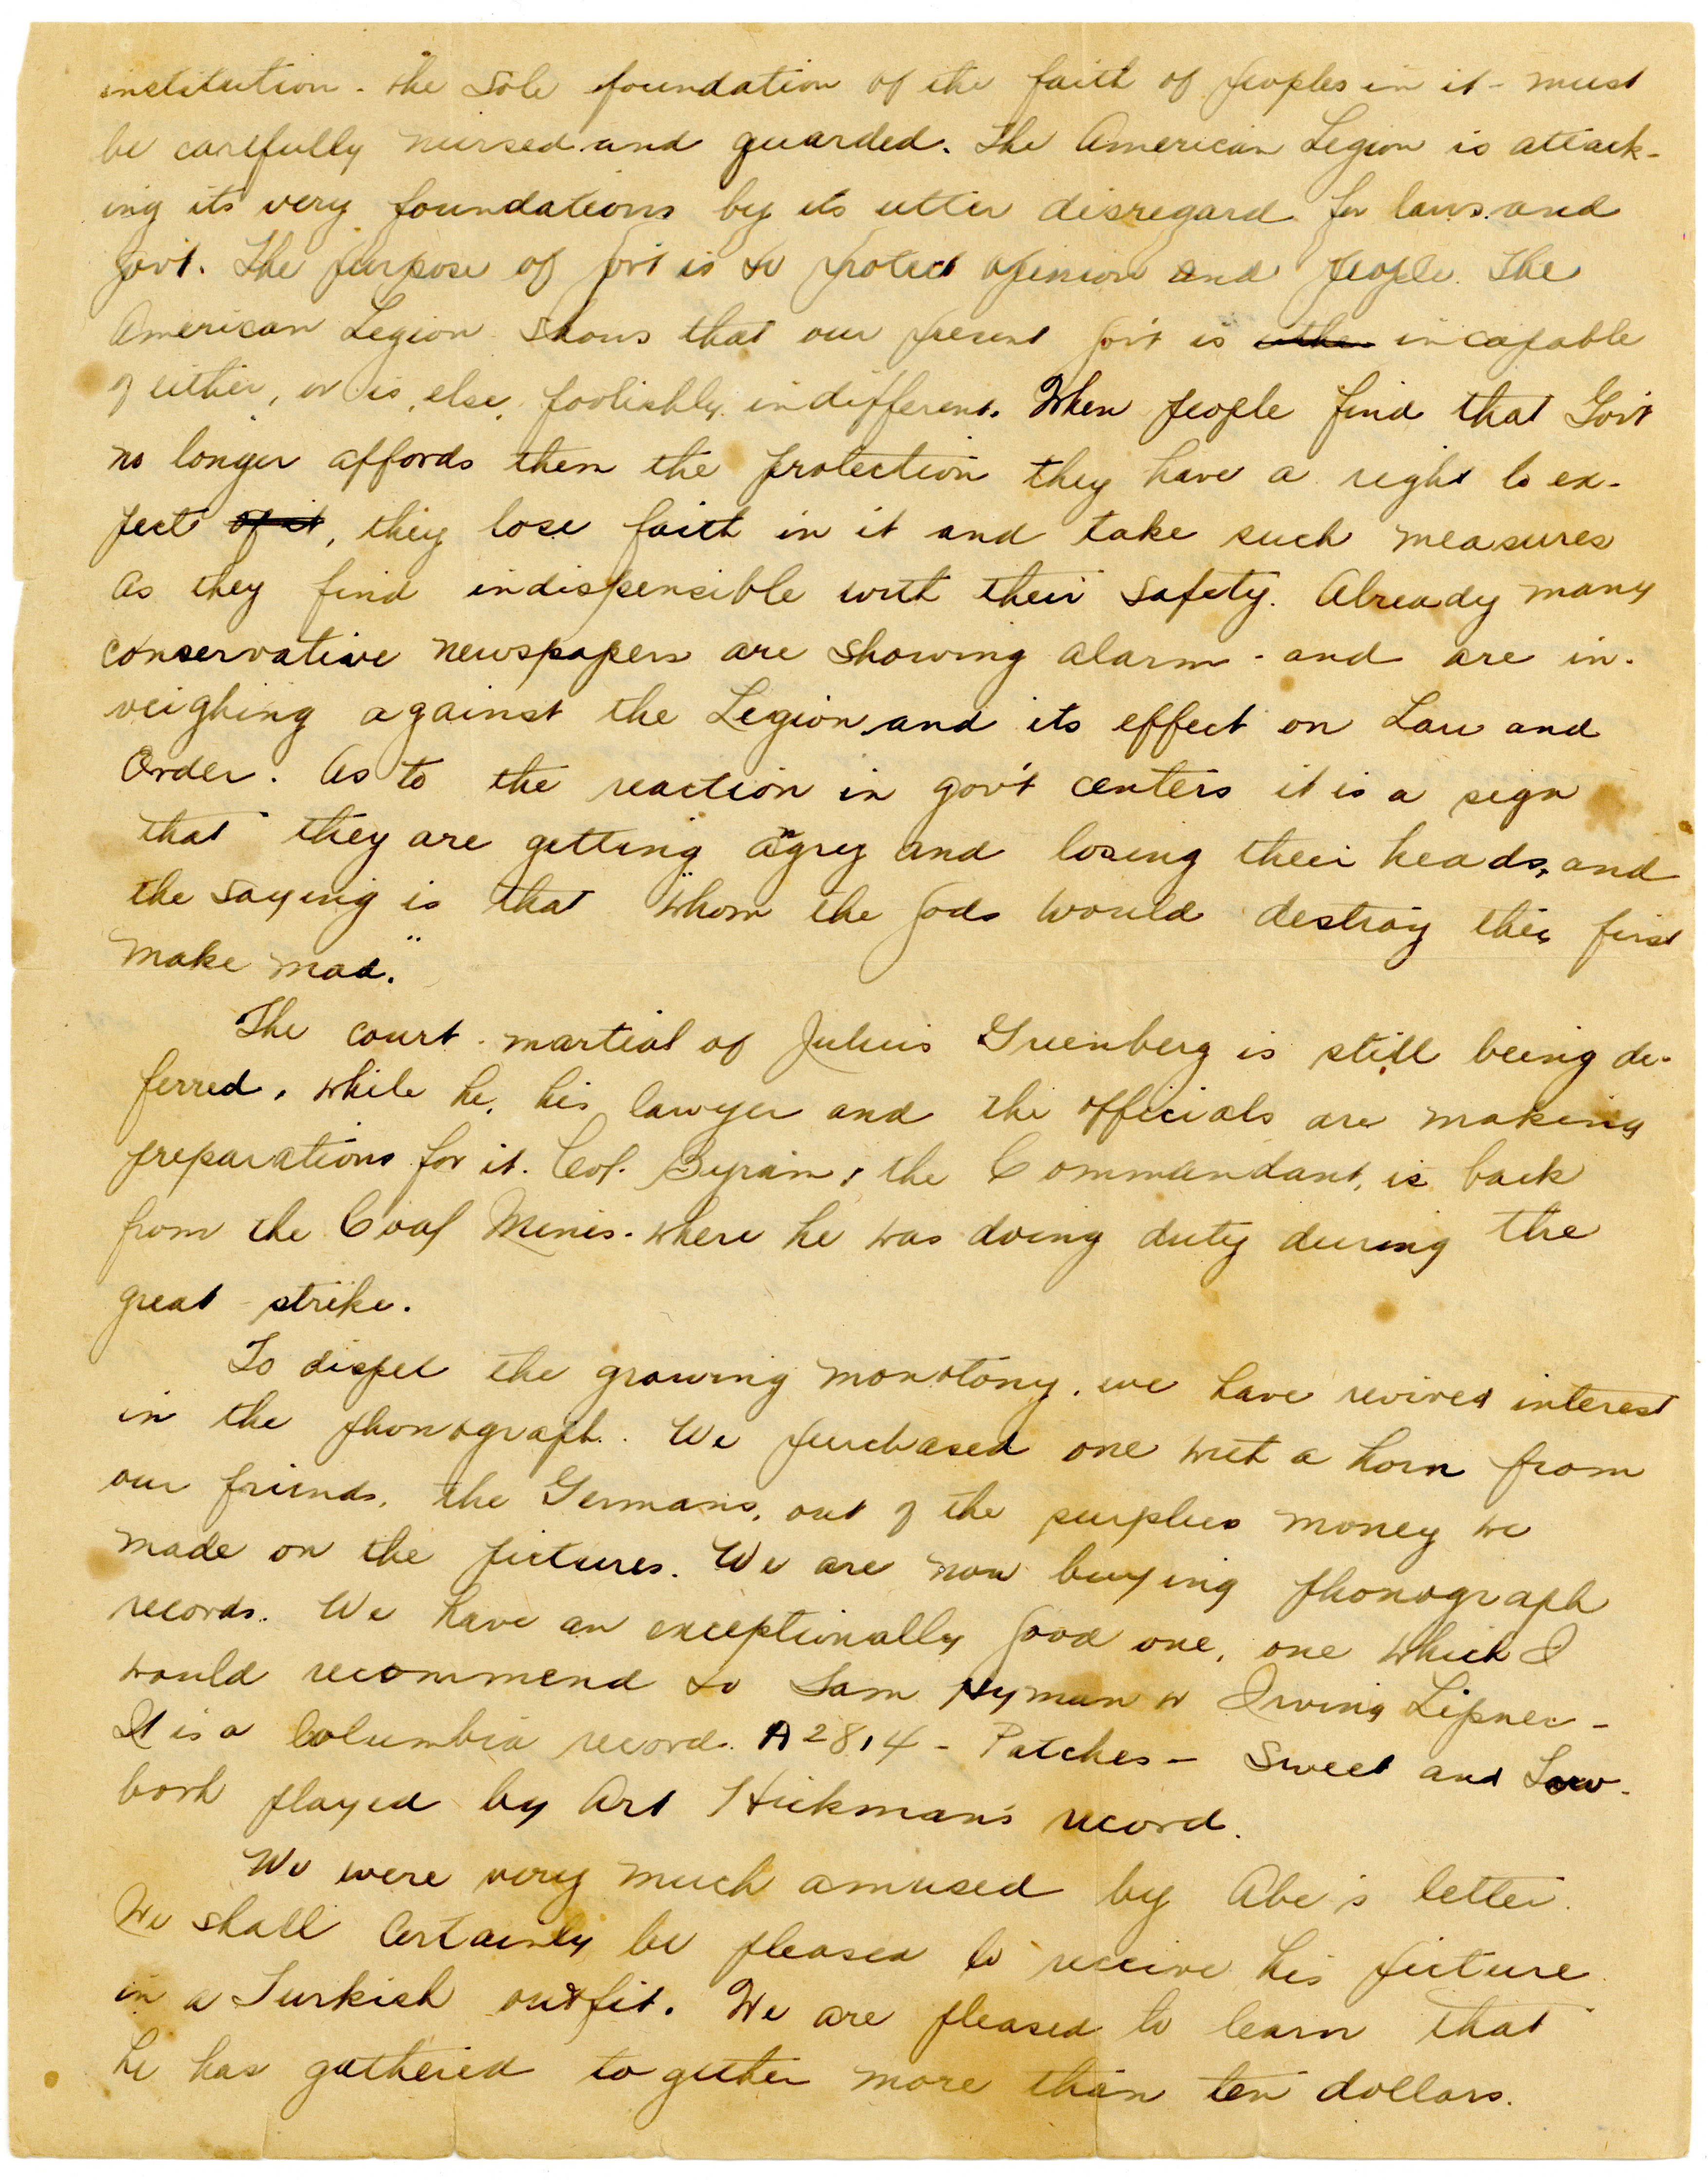 institution - the sole foundation of the faith of peoples in it - must
be carefully nursed and guarded. The American Legion is attack-
ing its very foundations by its utter disregard for laws and
gov't. The purpose of gov't is to protect opinion and people. The
American Legion shows that our present gov't is either incapable
of either, or is, else, foolishly indifferent. When people find that Gov't
no longer affords them the protection they have a right to ex-
pect of it, they lose faith in it and take such measures
as they find indispensible with their safety. Already many
conservative newspapers are showing alarm - and are in-
veighing against the Legion and its effect on Law and
Order. As to the reaction in gov't centers it is a sign
that they are getting angry and losing their heads, and
the saying is that "whom the gods would destroy they first
make mad."
The court-martial of Julius Greenberg is still being de-
ferred, while he, his lawyer and the officials are making
preparations for it. Col. Byram, the Commandant, is back
from the Coal Mines where he was doing duty during the
great strike.
To dispel the growing monotony, we have revived interest
in the phonograph. We purchased one with a horn from
our friends, the Germans, out of the surplus money we
made on the pictures. We are now buying phonograph
records. We have an exceptionally good one, one which I
would recommend to Sam Hyman or Irving Lipner -
It is a Columbia record. A2814 - Patches - Sweet and Low -
both played by Art Hickman's record.
We were very much amused by Abe's letter.
We shall certainly be pleased to receive his picture
in a Turkish outfit. We are pleased to learn that
he has gathered together more than ten dollars.